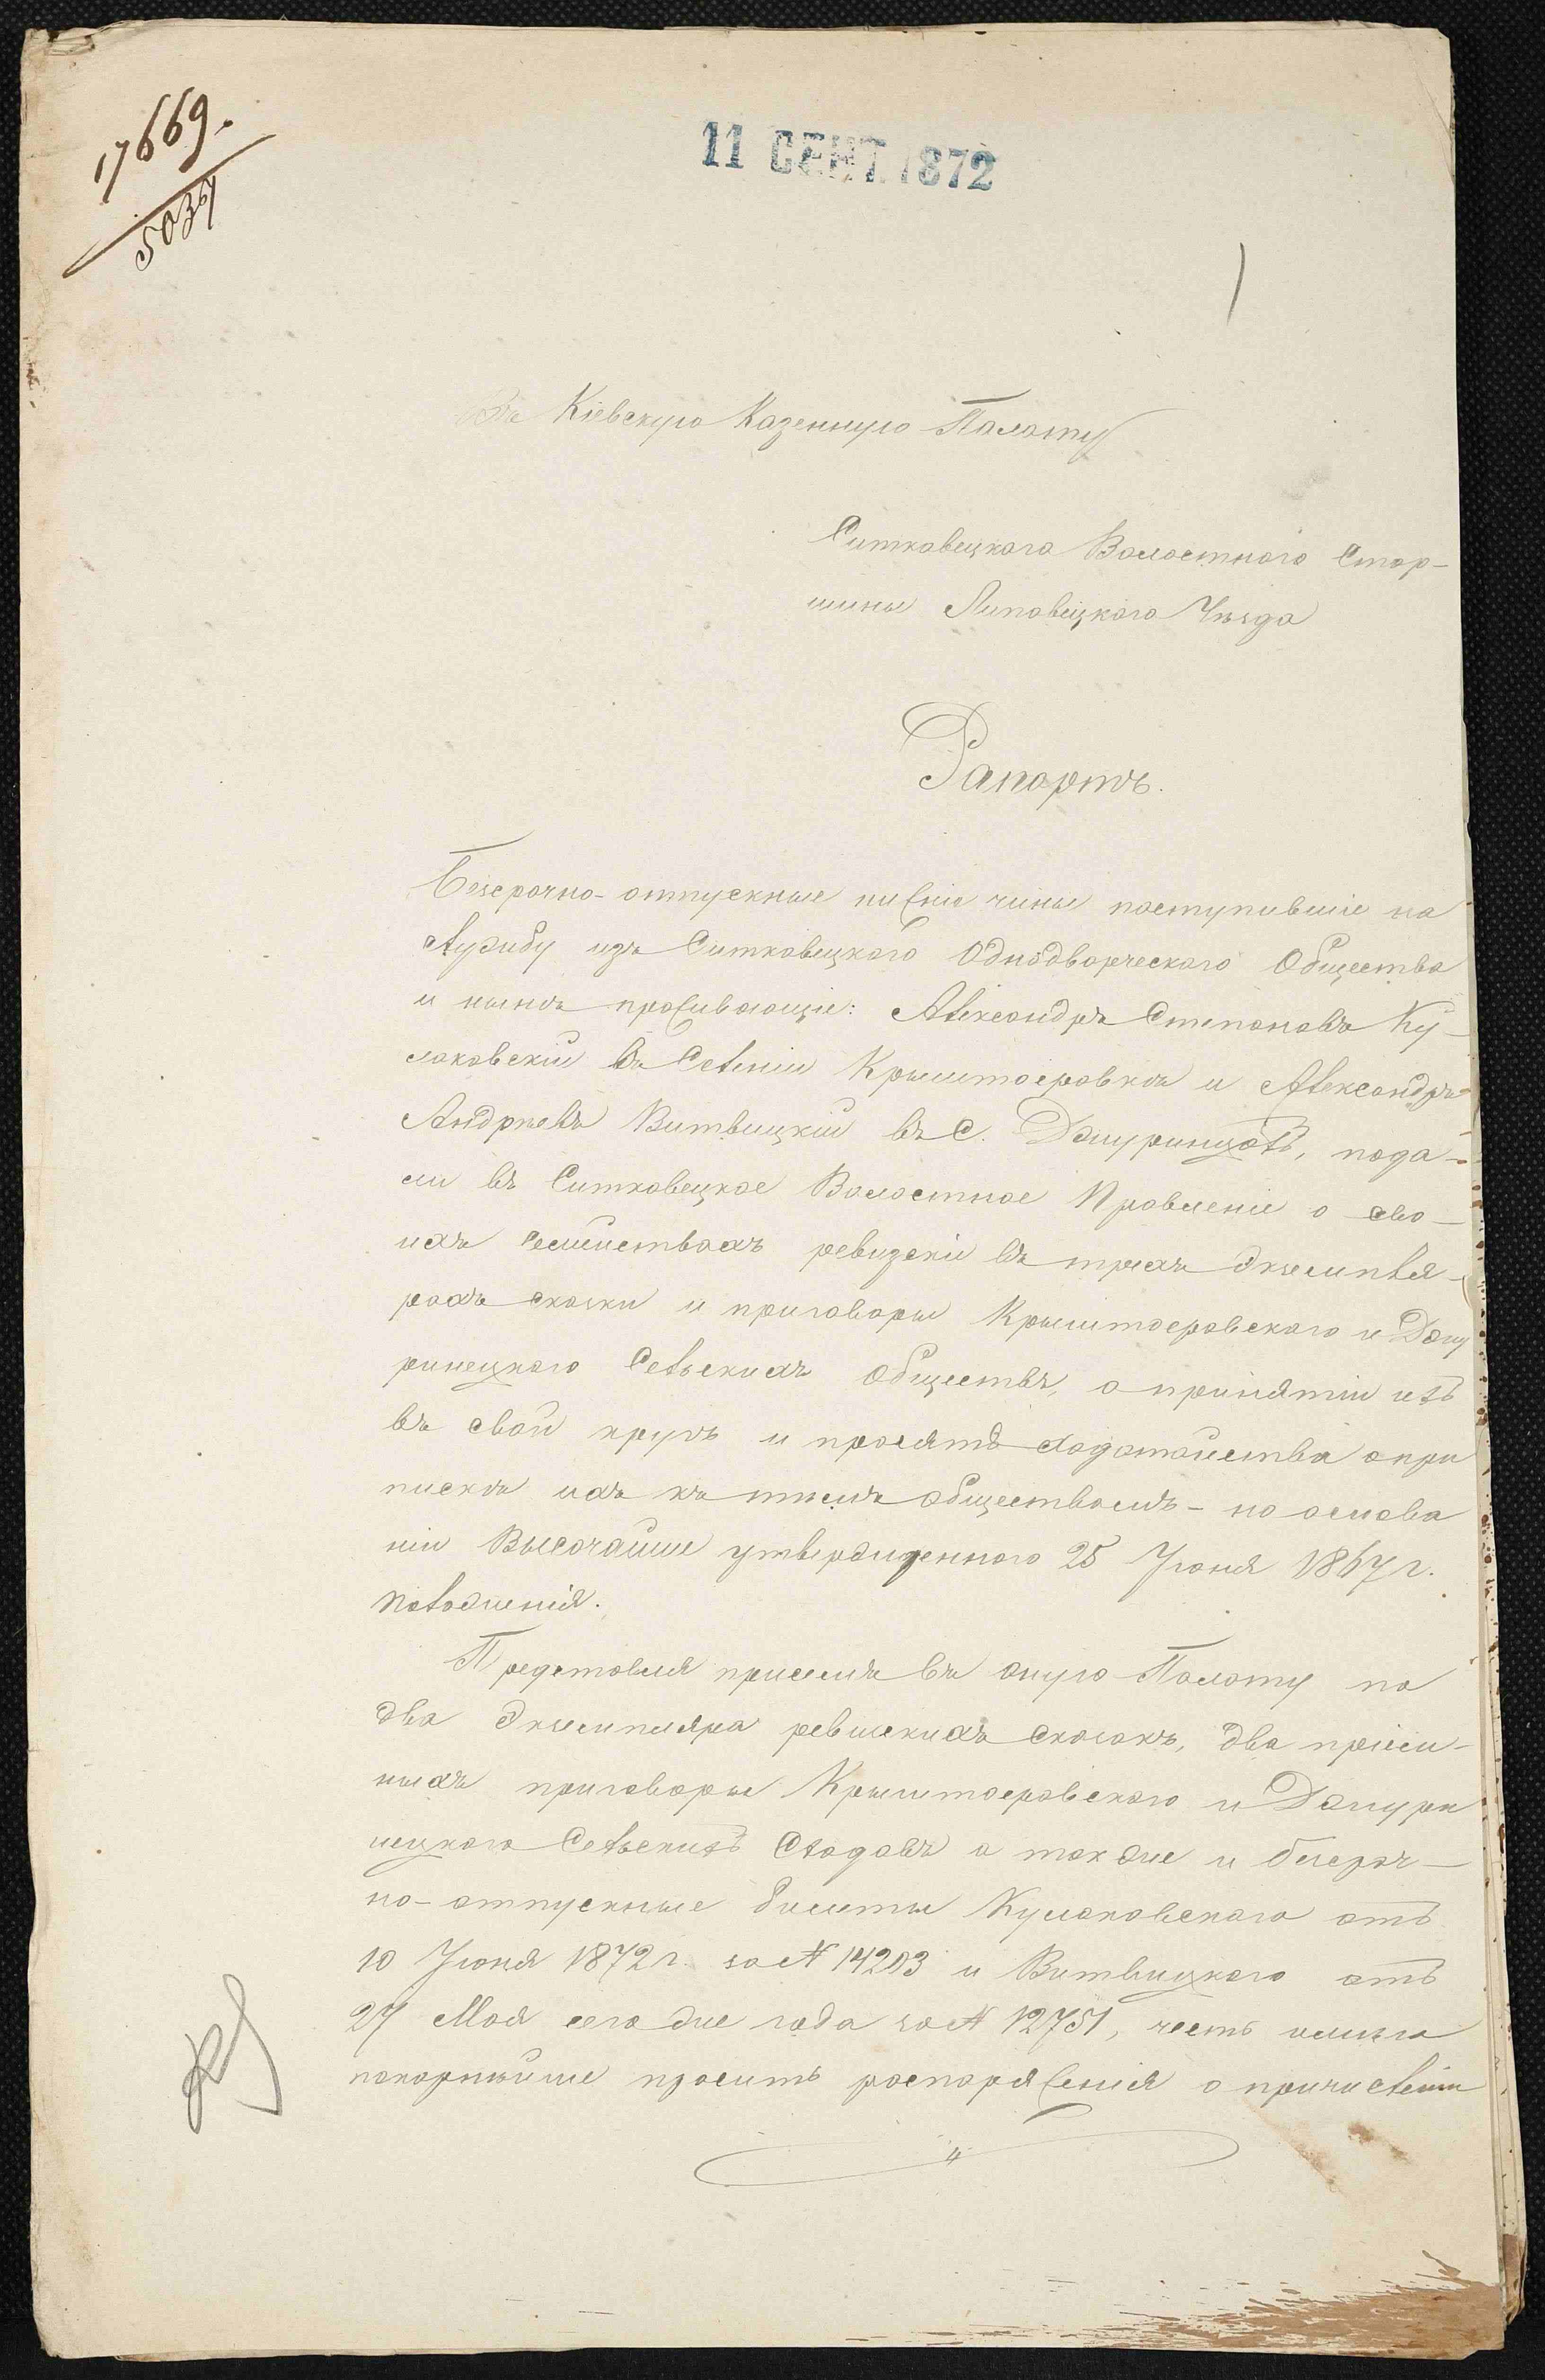 17669.
5037
11 СЕНТ. 1872
1
Въ Кіевскую Казенную Палату
Ситковецкаго Волостного Стар-
шины Липовецкаго Уѣзда
Рапортъ.
Безсрочно-отпускные нижніе чины поступившіе на
службу изъ Ситковецкаго Однодворческаго Общества
и нынѣ проживающіе: Александръ Степановъ Ку-
лаковскій въ Селеніи Крыштоповкѣ и Александръ
Андреевъ Витвицкій въ С. Дашуринцахъ, пода-
ли въ Ситковецкое Волостное Правленіе о сво-
ихъ семействахъ ревизскіе въ трехъ экземпля-
рахъ сказки и приговоры Крыштоповскаго и Дашу
ринецкаго Сельскихъ обществъ, о принятіи ихъ
въ свой кругъ и просятъ ходатайства о при
пискѣ ихъ къ тѣмъ обществамъ - на основа
ніи Высочайше утвержденнаго 25 Іюня 1867 г.
положенія.
Представляя при семъ въ оную Палату по
два экземпляра ревизскихъ сказокъ, два пріем-
ныхъ приговоры Крыштоповскаго и Дашури
нецкаго Сельскихъ Сходовъ а также и безсроч-
но-отпускные билеты Кулаковскаго отъ
10 Іюня 1872 г. за № 14203 и Витвицкаго отъ
27 Мая сего же года за № 12751, честь имѣю
покорнѣйше просить распоряженія о причисленіи